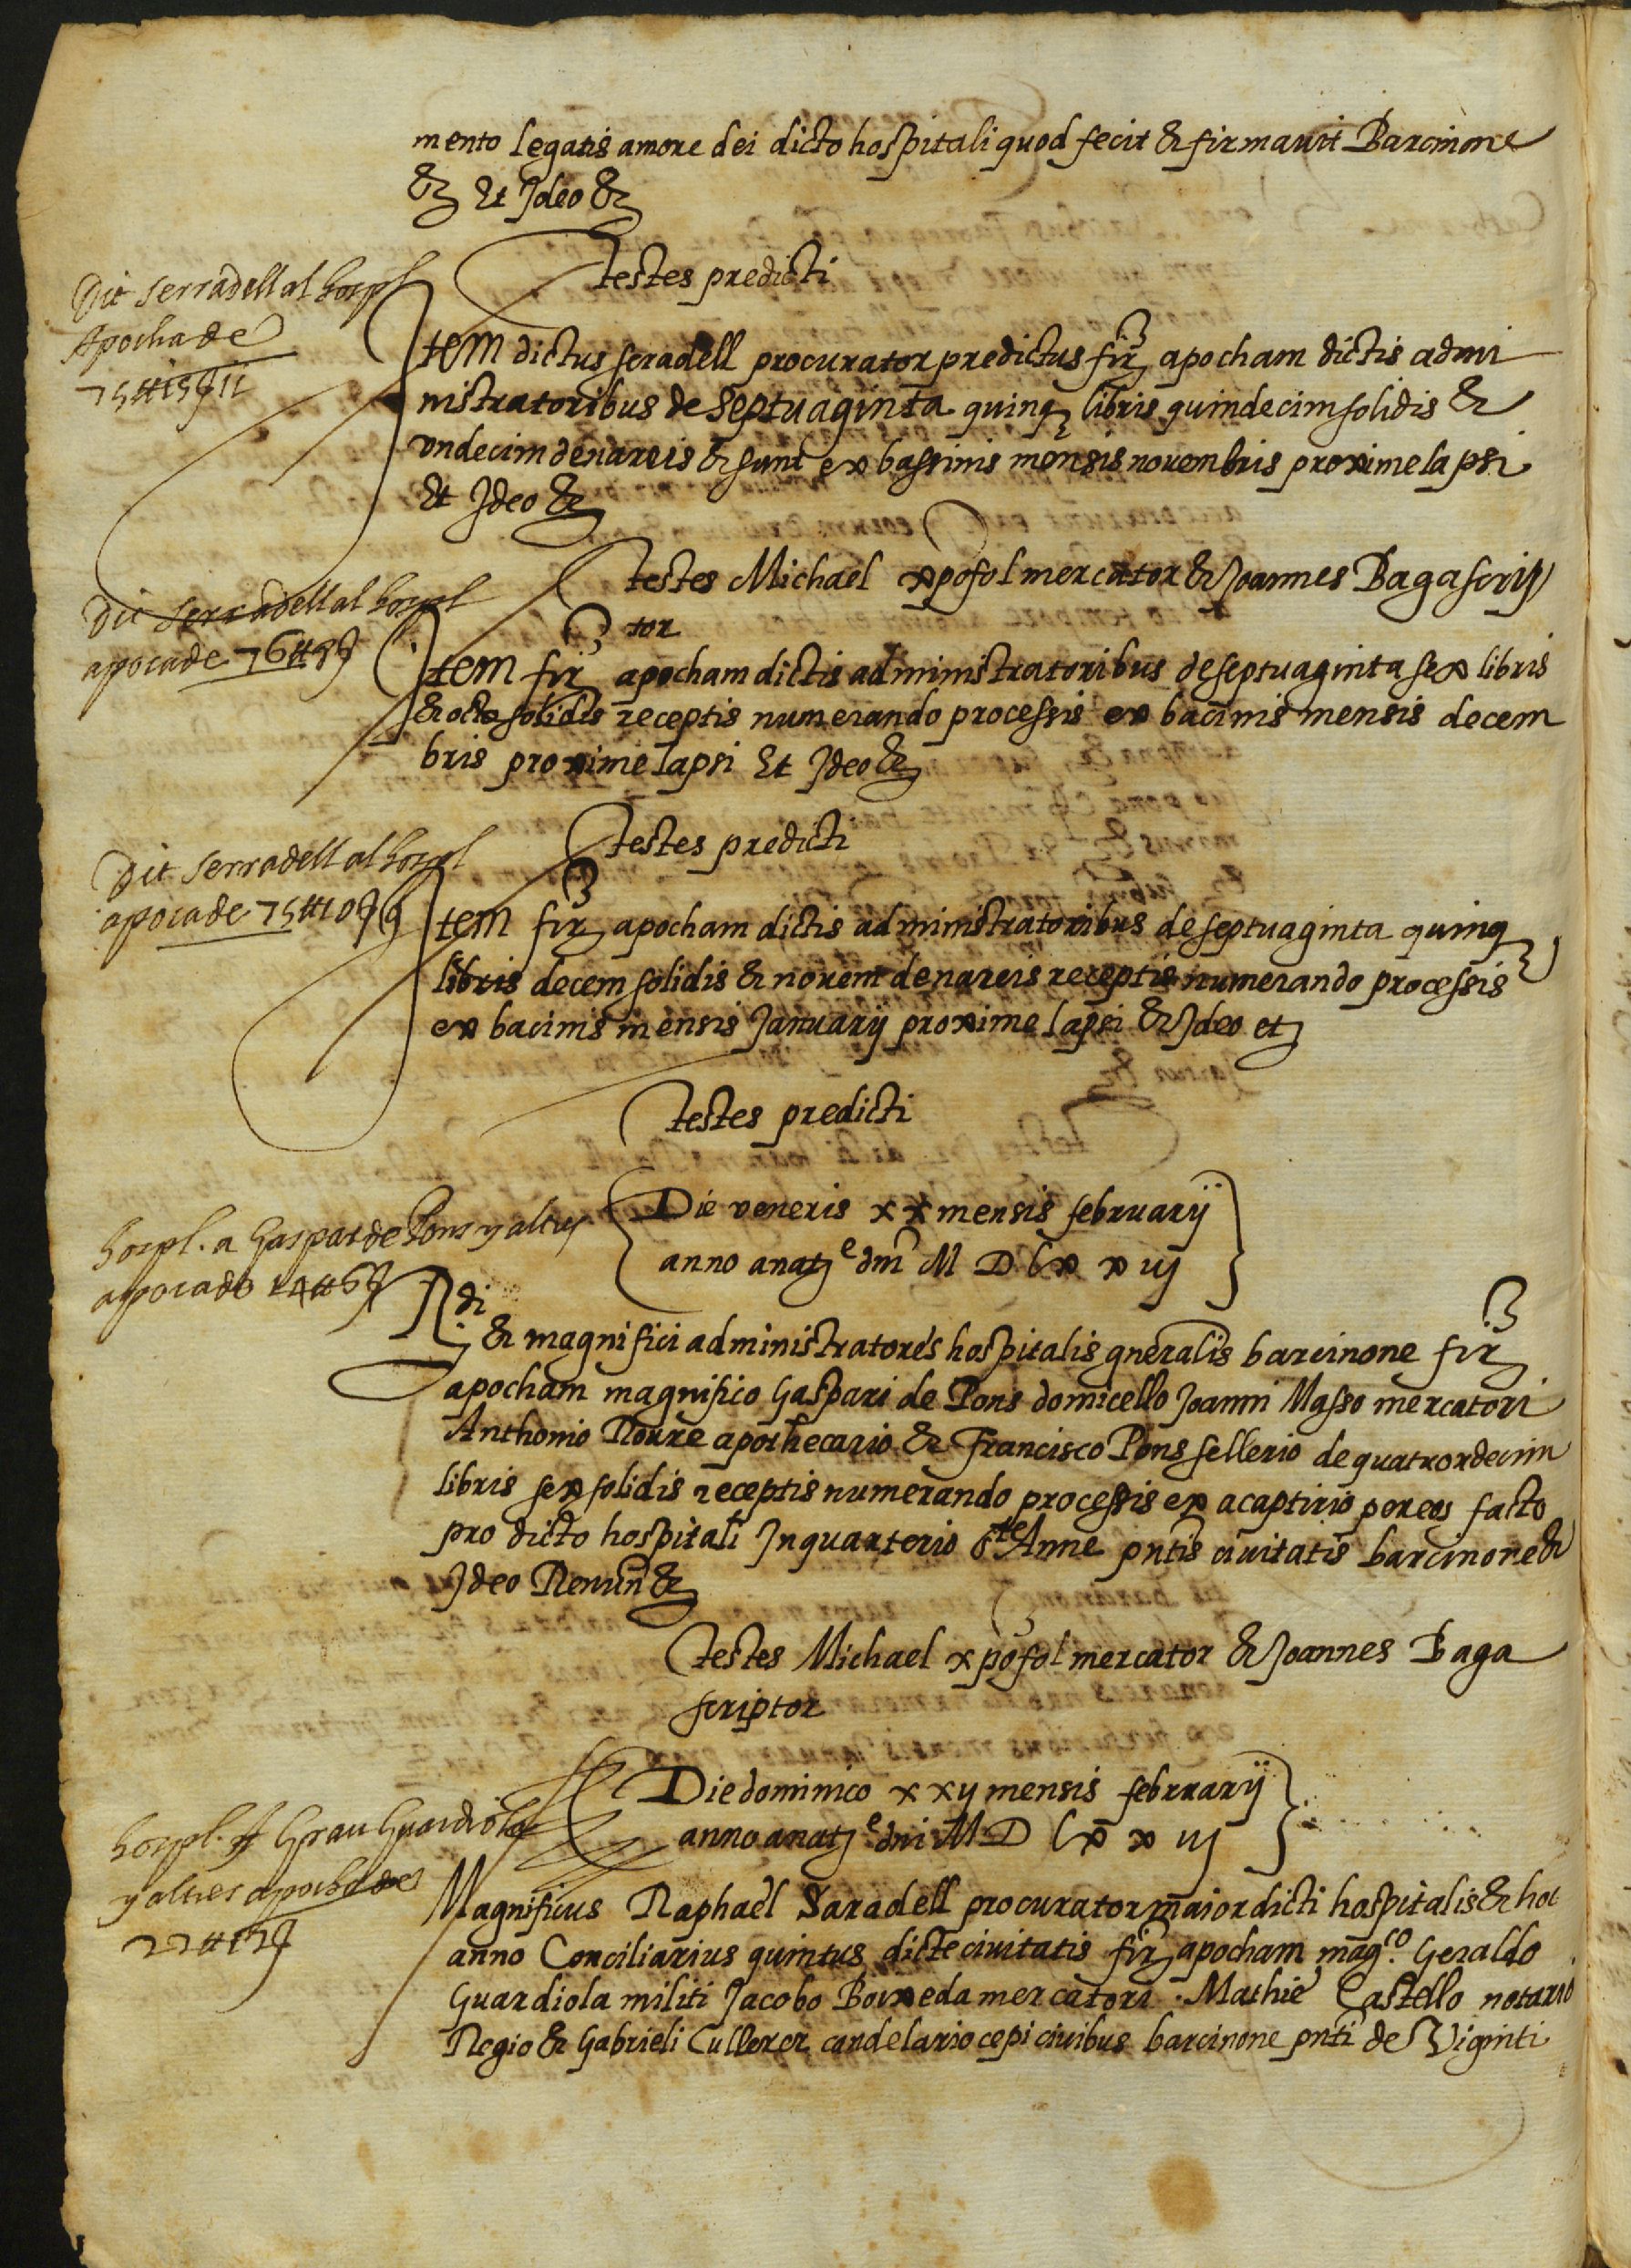 mento legatis amore dei dicto hospitali quod fecit & firmavit Barcinone
&c Et Ideo &c
testes predicti
Dit serradell al hospl
Apocha de
75 ₶ 15 ſ 11
Item dictus seradell procurator predictus fir apocham dictis admi
nistratoribus de septuaginta quinq libris quindecim solidis &
vndecim denareis & sunt ex bassinis mensis novembris proxime lapsi
Et Ideo &c
testes Michael xpofol mercator & Joannes Baga scrip
tor
Dit serradell al hospl
apoca de 76 ₶ 8 ſ
Item fir apocham dictis administratoribus de septuaginta sex libris
& octo solidis receptis numerando processis ex bacinis mensis decem
bris proxime lapsi Et Ideo &c
testes predicti
Dit serradell al hospl
apoca de 75 ₶ 10 ſ 9
Item fir apocham dictis administratoribus de septuaginta quinq
libris decem solidis & novem denareis receptis numerando processis
ex bacinis mensis Januarij proxime lapsi & Ideo et
testes predicti
Die veneris xx mensis februarij
anno a nat e dni M D Lxx iij
hospl. a Gaspar de Pons y altres
apoca de 14 ₶ 6 ſ
Rdi & magnifici administratores hospitalis gneralis barcinone fir
apocham magnifico Gaspari de Pons domicello Joanni Masso mercatori
Anthonio Rourе apothecario & Francisco Pons sellerio de quatrordecim
libris sex solidis receptis numerando processis ex acaptirio per eos facto
pro dicto hospitali In quarterio Ste Anne pntis civitatis barcinone &
Ideo Renun &c
testes Michael xpofol mercator & Joannes Baga
scriptor
Die dominico xxij mensis februarij
anno a nat e dni M D Lxx iij
hospl. A Grau Guardiola
y altres apocha de
22 ₶ 12 ſ
Magnificus Raphael Saradell procurator maior dicti hospitalis & hoc
anno Conciliarius quintus dicte civitatis fir apocham magco. Geraldo
Guardiola militi Jacobo Boixeda mercatori. Mathie Castello notario
Regio & Gabrieli Cullerer candelario cepi civibus barcinone pnti de Viginti